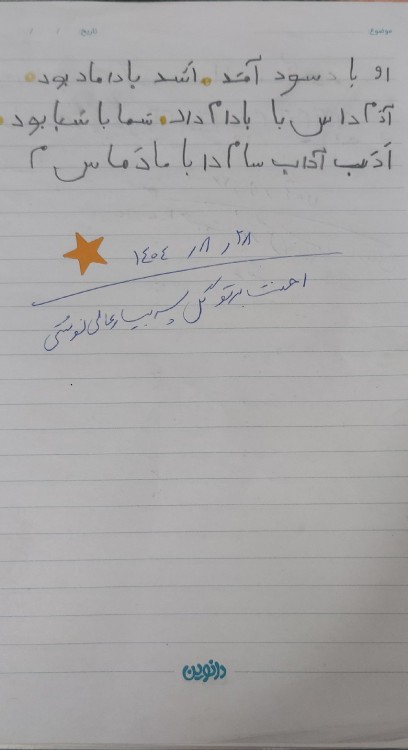 موضوع: تاریخ: / /
او با سود آمد. اسد با داماد بود.
آدم داس با بادام داد. شما با شبا بود.
اَدَب آداب سام دارا با مادَر ماس م
۲۸ ر ۸ ر ۱۴۰۴
احسنت بر تو گل پسر بسیار عالی نوشتی
دانوین